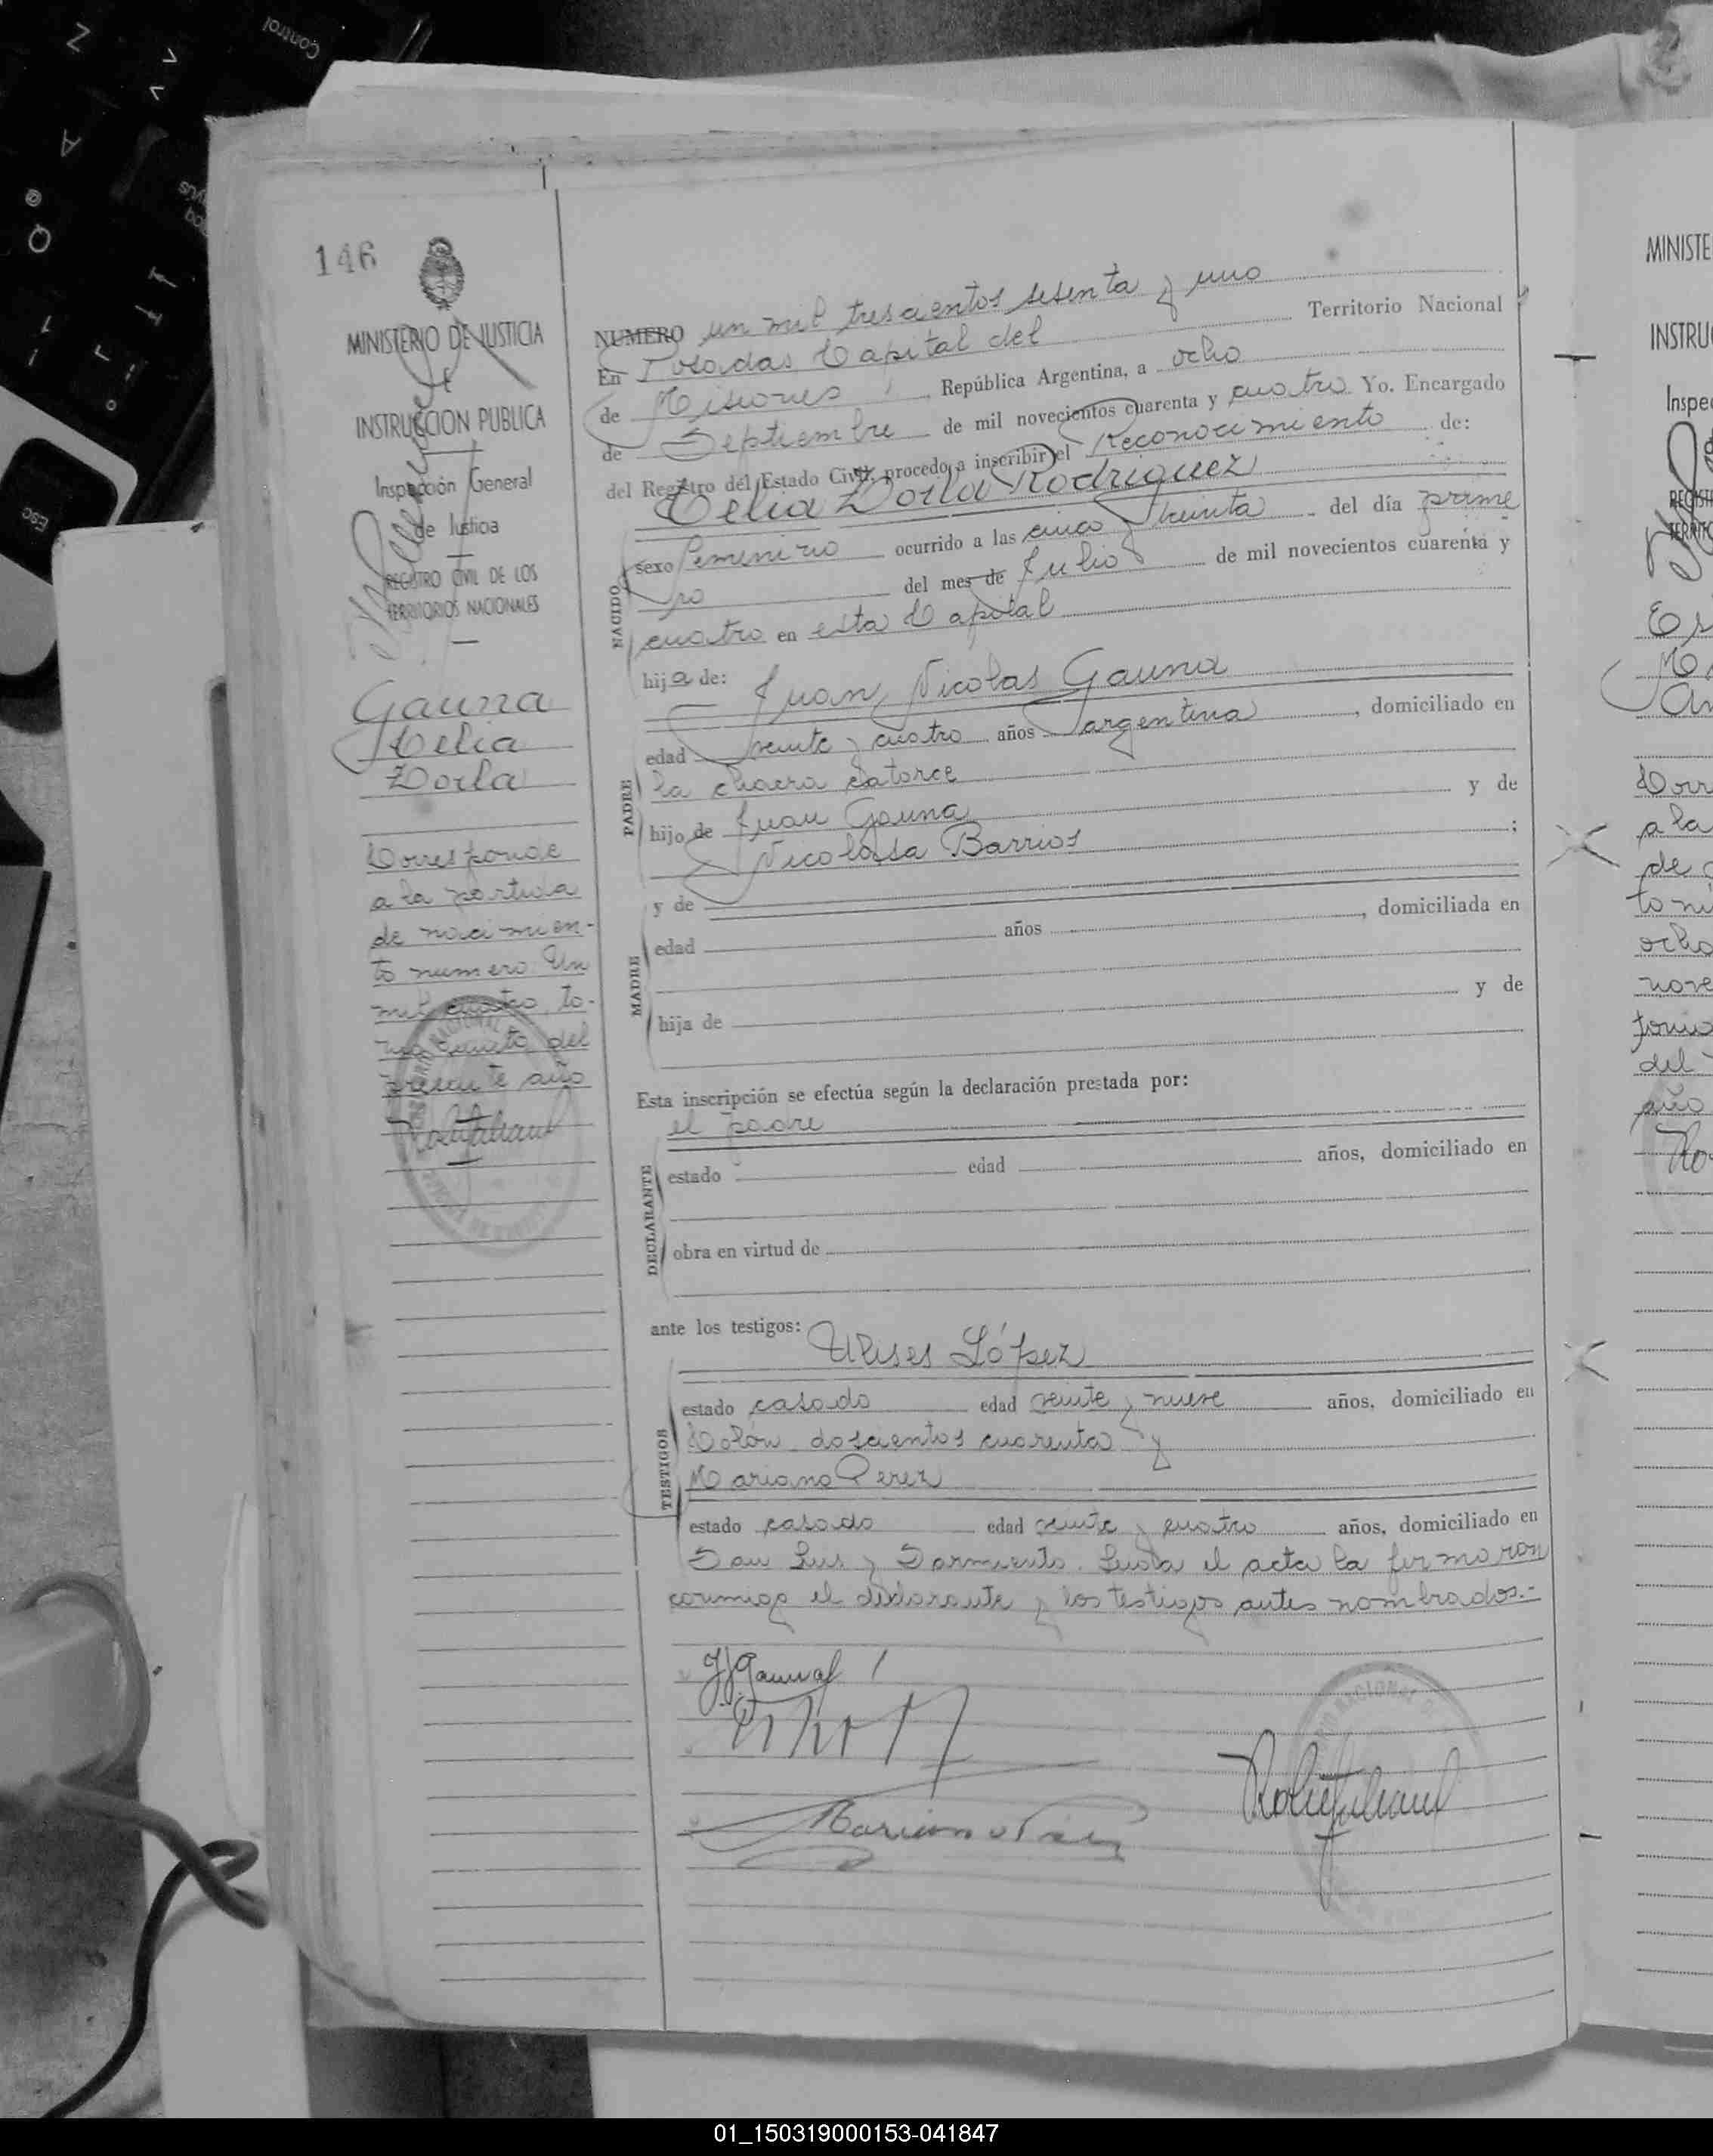 146
MINISTERIO DE JUSTICIA
E
INSTRUCCION PUBLICA
Inspección General
de Justicia
REGISTRO CIVIL DE LOS
TERRITORIOS NACIONALES
Gauna
Celia
Dorla
Corresponde
a la partida
de nacimien-
to numero Un
mil cuatro, to-
mo quinto del
presente año
NUMERO un mil trescientos sesenta y uno
En Posadas Capital del Territorio Nacional
de Misiones, República Argentina, a ocho
de Septiembre de mil novecientos cuarenta y cuatro Yo. Encargado
del Registro del Estado Civil, procedo a inscribir el Reconocimiento de:
Celia Dorla Rodriguez
NACIDO
sexo femenino ocurrido a las cinco y treinta del día prime
ro del mes de Julio de mil novecientos cuarenta y
cuatro en esta Capital
hija de: Juan Nicolas Gauna
PADRE
edad veinte y cuatro años argentina, domiciliado en
la chacra catorce
hijo de Juan Gauna y de
Nicolasa Barrios;
y de
MADRE
edad años, domiciliada en
hija de y de
Esta inscripción se efectúa según la declaración prestada por:
el padre
DECLARANTE
estado edad años, domiciliado en
obra en virtud de
ante los testigos: Ulises López
TESTIGOS
estado casado edad veinte y nueve años, domiciliado en
Colón doscientos cuarenta y
Mariano Perez
estado casado edad veinte y cuatro años, domiciliado en
San Luis y Sarmiento. Leida el acta la firmaron
conmigo el declarante y los testigos antes nombrados.-
J. Gauna
Mariano Perez
MINISTE
INSTRUC
Inspec
REGIST
TERRITO
Corr
a la
de
to nu
ocho
nove
tomo
del
año
Control
Esc
01_150319000153-041847